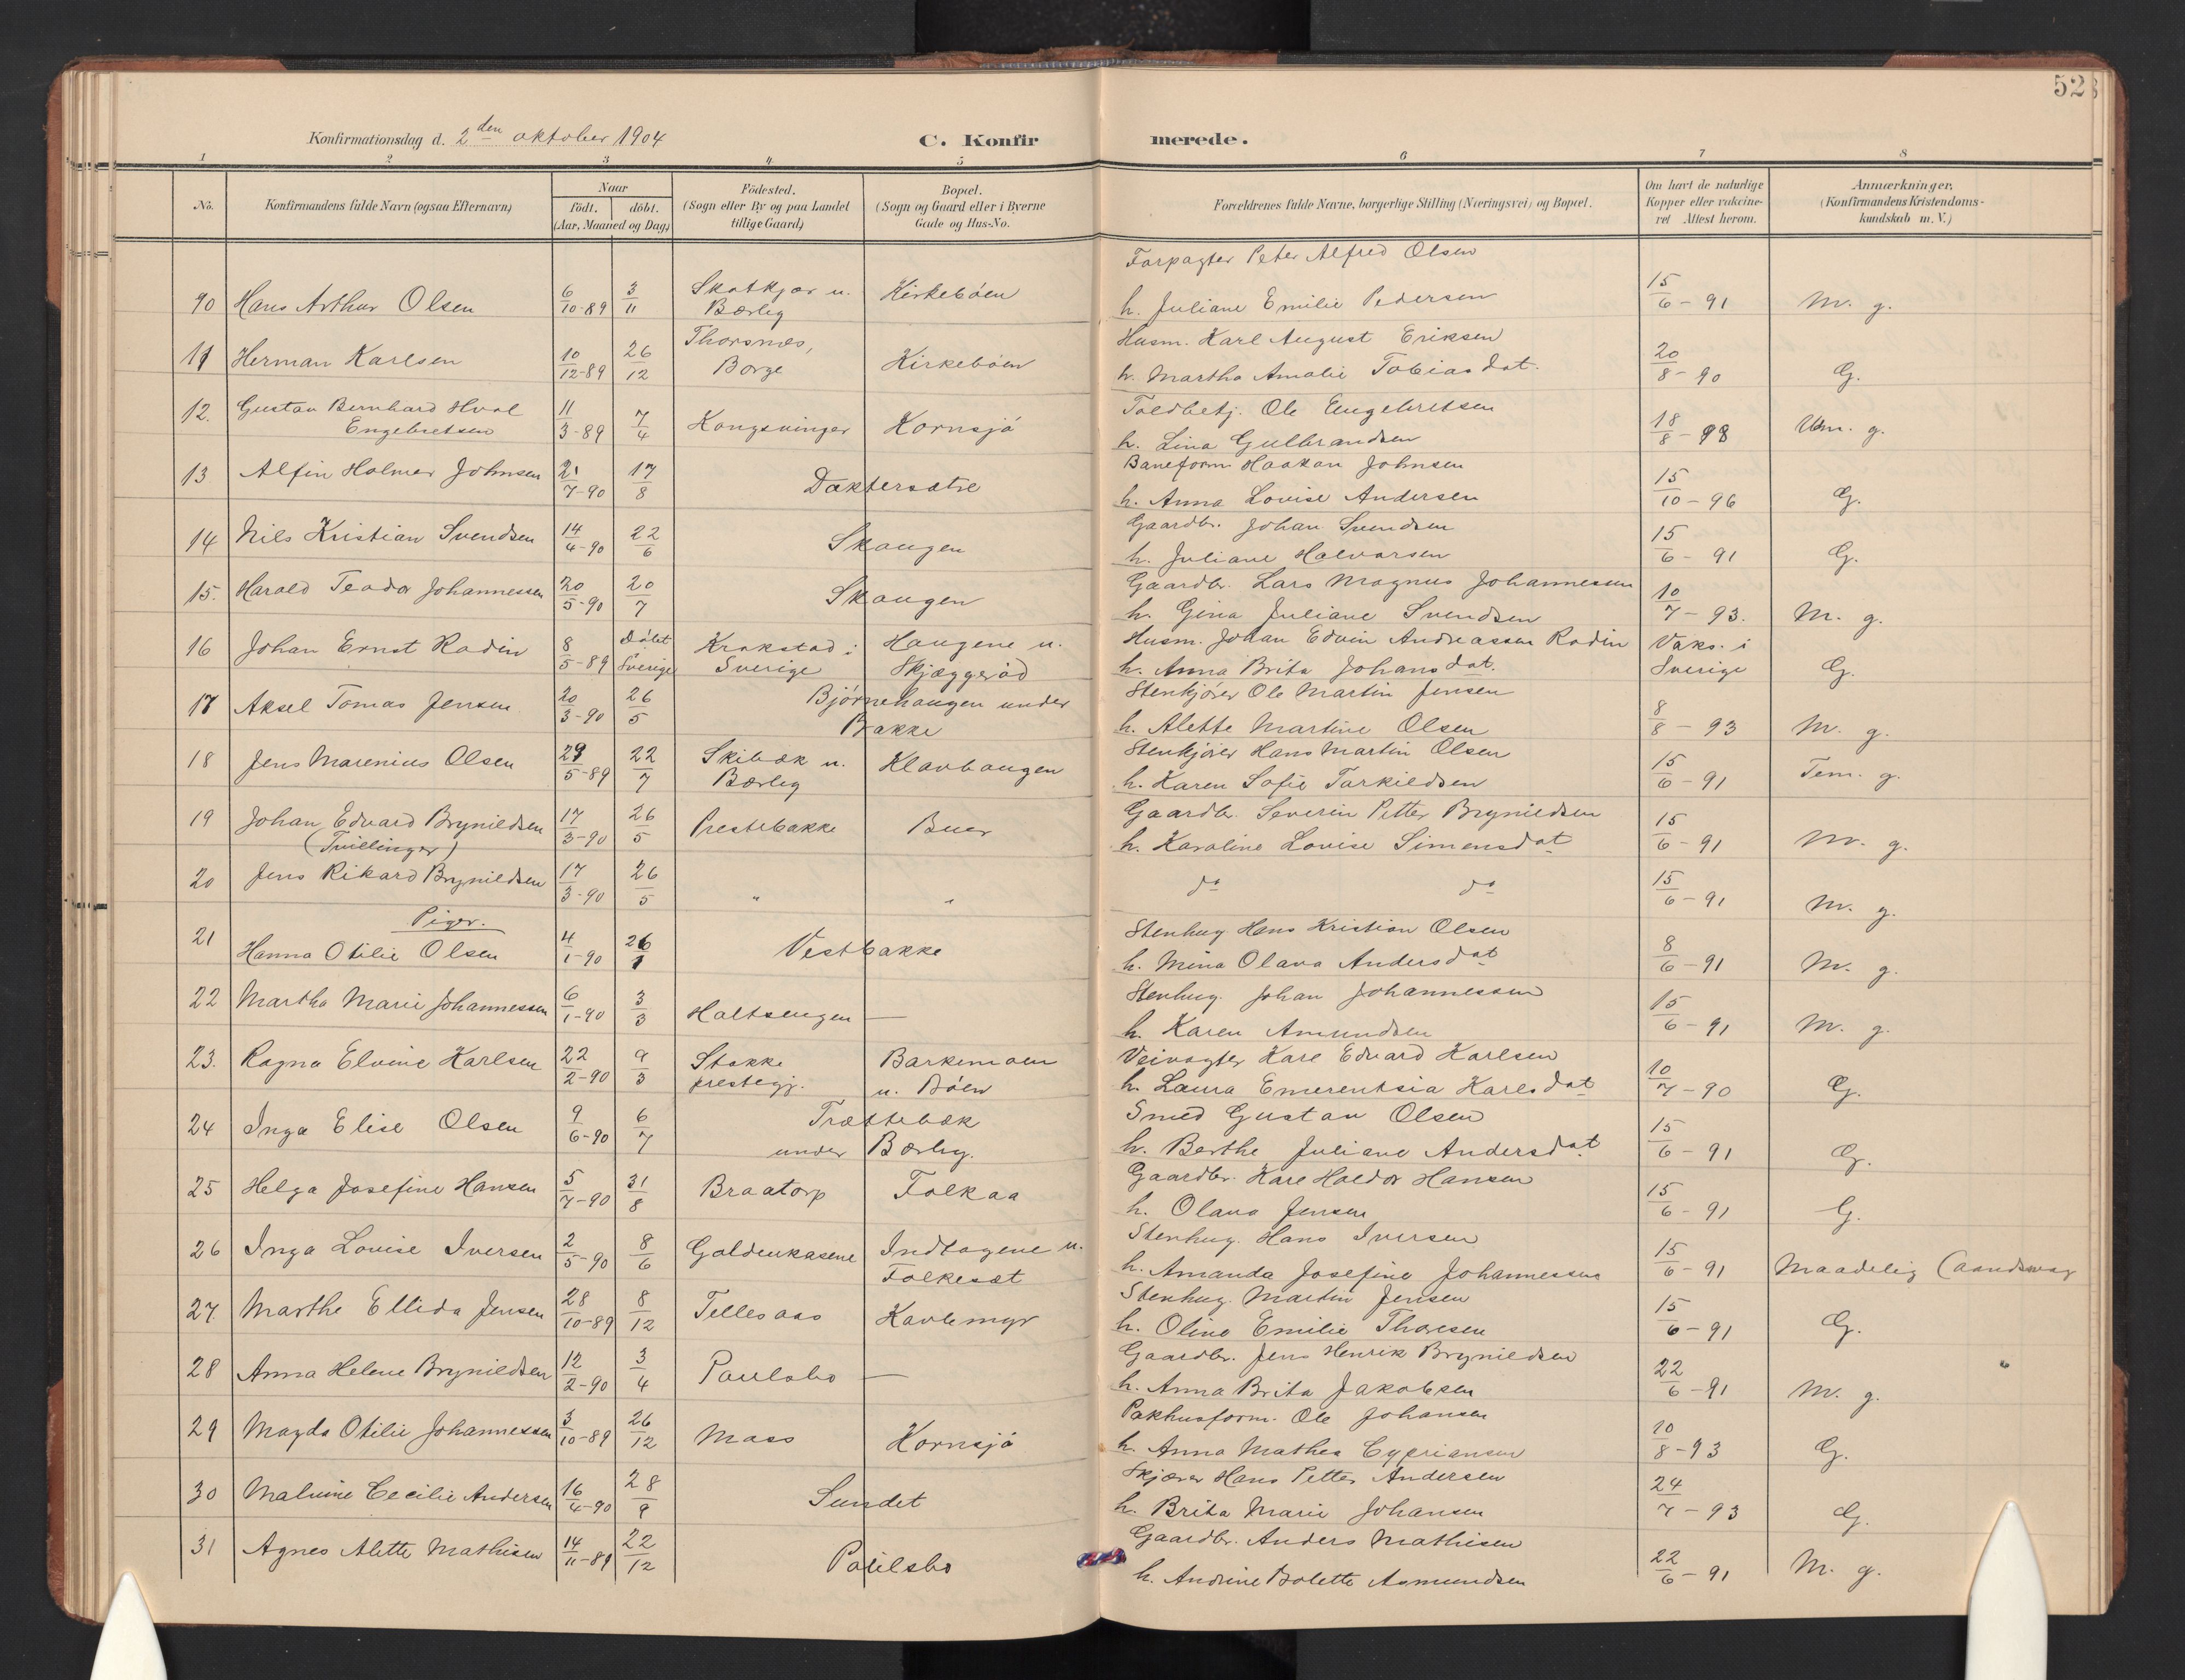 52
Konfirmationsdag d. 2den oktober 1904
C. Konfirmerede.
1 2 3 4 5 6 7 8
No.
Konfirmandens fulde Navn (ogsaa Efternavn)
Naar
født. døbt.
(Aar, Maaned og Dag)
Födested.
(Sogn eller By og paa Landet
tillige Gaard)
Bopæl.
(Sogn og Gaard eller i Byerne
Gade og Hus-No.
Forældrenes fulde Navne, borgerlige Stilling (Næringsvei) og Bopæl.
Om havt de naturlige
Kopper eller vakcine-
ret Attest herom.
Anmærkninger.
(Konfirmandens Kristendoms-
kundskab m. V.)
Forpagter Peter Alfred Olsen
10 Hans Arthur Olsen 6/10-89 3/11 Skotkjær u. Bærby Kirkebøen h. Juliane Emilie Pedersen 15/6-91 M. g.
Husm. Karl August Eriksen
11 Herman Karlsen 10/12-89 26/12 Thorsnæs, Borge Kirkebøen h. Martha Amalie Tobiasdat. 20/8-90 G.
Toldbetj. Ole Engebretsen
12. Gustav Bernhard Hval Engebretsen 11/3-89 7/4 Kongsvinger Kornsjø h. Lina Gulbrandsen 18/8-98 Um. g.
Baneform. Haakon Johnsen
13 Alfin Holmer Johnsen 21/7-90 17/8 Daktersætre h. Anna Lovise Andersen 15/10-96 G.
Gaardbr. Johan Svendsen
14 Nils Kristian Svendsen 14/4-90 22/6 Skaugen h. Juliane Halvorsen 15/6-91 G.
Gaardbr. Lars Magnus Johannessen
15. Harald Teodor Johannessen 20/5-90 20/7 Skaugen h. Gina Juliane Svendsen 10/7-93. M. g.
Husm. Johan Edvin Andreassen Rodin
16 Johan Ernst Rodin 8/5-89 Døbt Sverige Krokstad i Sverige Haugene u. Skjæggerød h. Anna Brita Johansdat. Vaks. i Sverige G.
Stenkjører Ole Martin Jensen
17 Aksel Tomas Jensen 20/3-90 26/5 Bjørnehaugen under Bakke h. Alette Martine Olsen 8/8-93 M. g.
Stenkjører Hans Martin Olsen
18 Jens Marenius Olsen 29/5-89 22/7 Skibæk u. Bærby Klavhaugen h. Karen Sofie Tarkildsen 15/6-91 Tem. g.
Gaardbr. Severin Petter Brynildsen
19 Johan Edvard Brynildsen 17/3-90 26/5 Prestebakke Buer h. Karoline Lovise Simensdat 15/6-91 M. g.
(Tvillinger)
20 Jens Rikard Brynildsen 17/3-90 26/5 " " do do 15/6-91 M. g.
Piger.
Stenhug. Hans Kristian Olsen
21 Hanna Otilie Olsen 4/1-90 26/1 Vestbakke h. Mina Olava Andersdat 8/6-91 M. g.
Stenhug. Johan Johannessen
22 Martha Marie Johannessen 6/1-90 3/3 Holtsengen — h. Karen Amundsen 15/6-91 M. g.
Veivogter Karl Edvard Karlsen
23. Ragna Elvine Karlsen 22/2-90 9/3 Stokke prestegj. Barkemoen u. Bøen h. Laura Emerentsia Karlsdat 10/7-90 G.
Smed Gustav Olsen
24 Inga Elise Olsen 9/6-90 6/7 Trættebæk under Bærby. h. Berthe Juliane Andersdat 15/6-91 G.
Gaardbr. Karl Haldor Hansen
25 Helga Josefine Hansen 5/7-90 31/8 Braatorp Folkaa h. Olava Jensen 15/6-91 G.
Stenhug. Hans Iversen
26 Inga Lovise Iversen 2/5-90 8/6 Goldenkasene Indtagene u. Folkesæt h. Amanda Josefine Johannessen 15/6-91 Maadelig (aandsvag
Stenhug. Martin Jensen
27. Marthe Ellida Jensen 28/10-89 8/12 Tellesaas Kavlemyr h. Oline Emilie Thoresen 15/6-91 G.
Gaardbr. Jens Henrik Brynildsen
28 Anna Helene Brynildsen 12/2-90 3/4 Paulsbo — h. Anna Brita Jakobsen 22/6-91 M. g.
Pakhusform. Ole Johansen
29 Magda Otilie Johannessen 3/10-89 26/12 Moss Kornsjø h. Anna Mathea Cypriansen 10/8-93 G.
Skjærer Hans Petter Andersen
30 Malvine Cecilie Andersen 16/4-90 28/9 Sundet h. Brita Marie Johansen 24/7-93 G.
Gaardbr. Anders Mathisen
31 Agnes Alette Mathisen 14/11-89 22/12 Paulsbo h. Andrine Bolette Asmundsen 22/6-91 M. g.